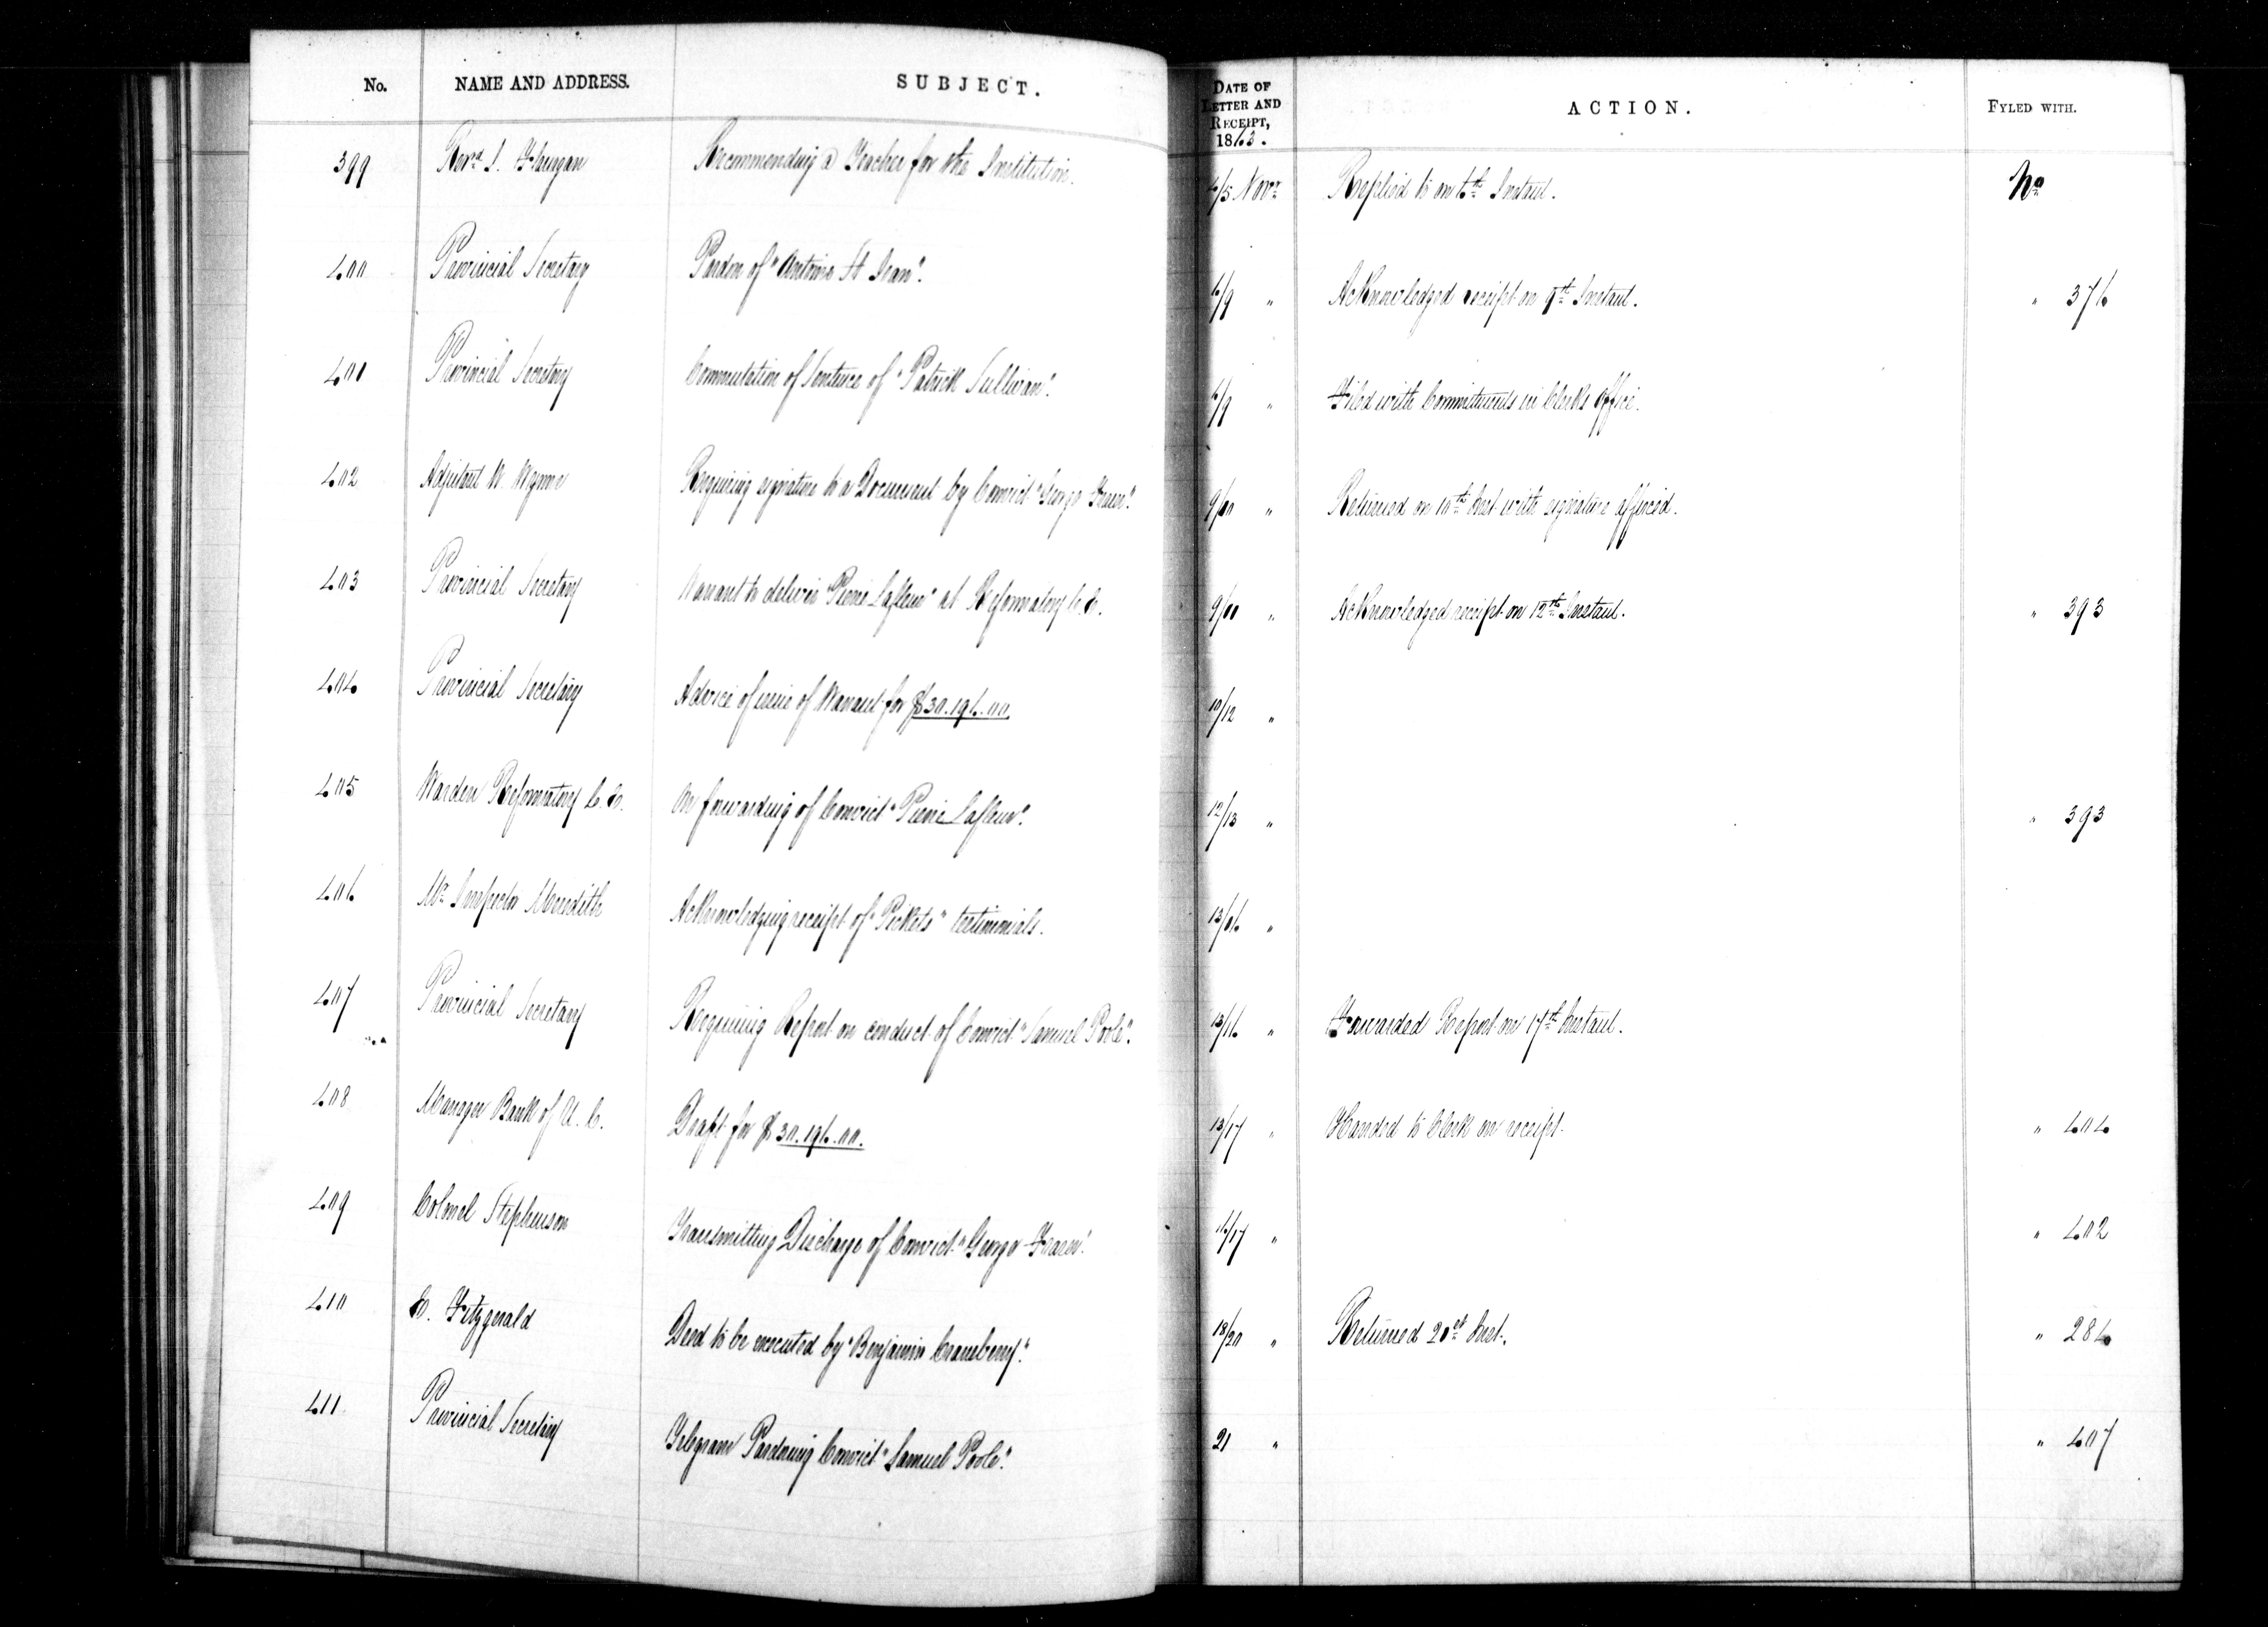 No. NAME AND ADDRESS. SUBJECT. DATE OF LETTER AND RECEIPT, 1863. ACTION. FYLED WITH.
399 Revd. Recommending a Teacher for the Institution. 4/5 Novr Replied to on 6th Instant. No
400 Provincial Secretary Pardon of "Antoine St Jean". 6/9 " Acknowledged receipt on 9th Instant. " 376
401 Provincial Secretary Commutation of Sentence of "Patrick Sullivan". 6/9 " Filed with Commitments in Clerks Office.
402 Adjutant W. Wynne Requiring signature to a Document by Convict "George Fraser". 9/10 " Returned on 10th Inst. with signature affixed.
403 Provincial Secretary Warrant to deliver "Pierre Lafleur" at Reformatory L. C. 9/10 " Acknowledged receipt on 12th Instant. " 393
404 Provincial Secretary Advice of issue of Warrant for $30.196.00 10/12 "
405 Warden Reformatory L. C. On forwarding of Convict "Pierre Lafleur". 12/13 " " 393
406 Mr Inspector Meredith Acknowledging receipt of "Pickets" testimonials. 13/16 "
407 Provincial Secretary Requiring Report on conduct of Convict "Samuel Poole". 13/16 " Forwarded Report on 17th Instant.
408 Manager Bank of U. C. Draft for $30.196.00. 13/17 " Handed to Clerk on receipt. " 404
409 Colonel Stephenson Transmitting Discharge of Convict "George Fraser". 16/17 " " 402
410 Fitzgerald Deed to be executed by "Benjamin Cranberry." 18/20 " Returned 20th Inst. " 284
411 Provincial Secretary Telegram Pardoning Convict "Samuel Poole". 21 " " 407